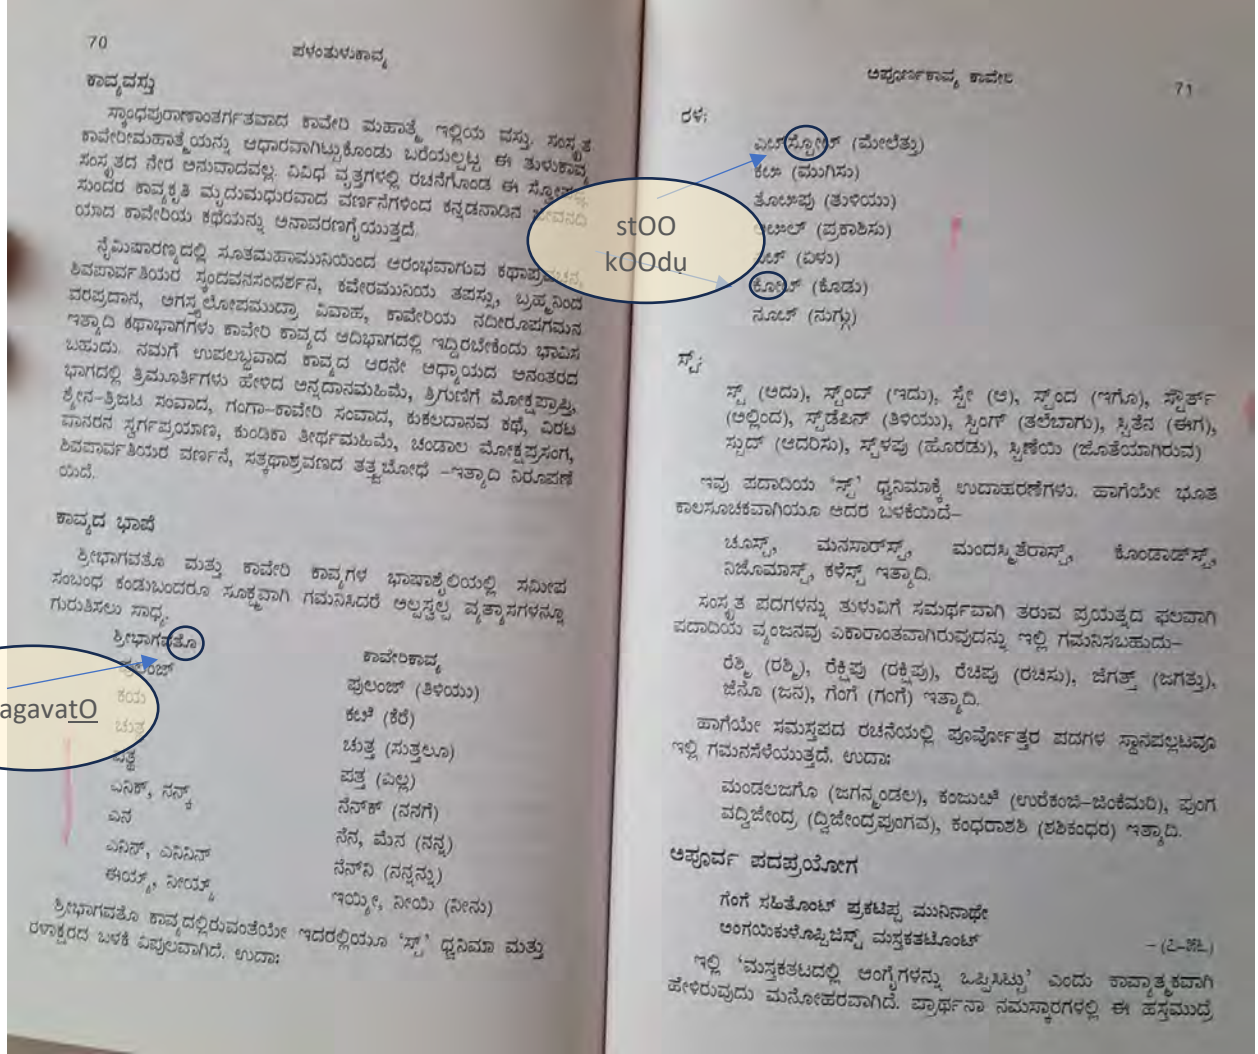 70
ಪಳಂತುಳುಕಾವ್ಯ
ಕಾವ್ಯವಸ್ತು
ಸ್ಕಾಂಧಪುರಾಣಾಂತರ್ಗತವಾದ ಕಾವೇರಿ ಮಹಾತ್ಮೆ ಇಲ್ಲಿಯ ವಸ್ತು. ಸಂಸ್ಕೃತ
ಕಾವೇರೀಮಹಾತ್ಮೆಯನ್ನು ಆಧಾರವಾಗಿಟ್ಟುಕೊಂಡು ಬರೆಯಲ್ಪಟ್ಟ ಈ ತುಳುಕಾವ್ಯ
ಸಂಸ್ಕೃತದ ನೇರ ಅನುವಾದವಲ್ಲ. ವಿವಿಧ ವೃತ್ತಗಳಲ್ಲಿ ರಚನೆಗೊಂಡ ಈ
ಸುಂದರ ಕಾವ್ಯಕೃತಿ ಮೃದುಮಧುರವಾದ ವರ್ಣನೆಗಳಿಂದ ಕನ್ನಡನಾಡಿನ ಜೀವನದಿ
ಯಾದ ಕಾವೇರಿಯ ಕಥೆಯನ್ನು ಅನಾವರಣಗೈಯುತ್ತದೆ.
ನೈಮಿಷಾರಣ್ಯದಲ್ಲಿ ಸೂತಮಹಾಮುನಿಯಿಂದ ಆರಂಭವಾಗುವ ಕಥಾಪ್ರವಚನ,
ಶಿವಪಾರ್ವತಿಯರ ಸ್ಕಂದವನಸಂದರ್ಶನ, ಕವೇರಮುನಿಯ ತಪಸ್ಸು, ಬ್ರಹ್ಮನಿಂದ
ವರಪ್ರದಾನ, ಅಗಸ್ತ್ಯಲೋಪಮುದ್ರಾ ವಿವಾಹ, ಕಾವೇರಿಯ ನದೀರೂಪಗಮನ
ಇತ್ಯಾದಿ ಕಥಾಭಾಗಗಳು ಕಾವೇರಿ ಕಾವ್ಯದ ಆದಿಭಾಗದಲ್ಲಿ ಇದ್ದಿರಬೇಕೆಂದು ಭಾವಿಸ
ಬಹುದು. ನಮಗೆ ಉಪಲಬ್ಧವಾದ ಕಾವ್ಯದ ಆರನೇ ಅಧ್ಯಾಯದ ಅನಂತರದ
ಭಾಗದಲ್ಲಿ ತ್ರಿಮೂರ್ತಿಗಳು ಹೇಳಿದ ಅನ್ನದಾನಮಹಿಮೆ, ಶ್ರಿಗುಣಿಗೆ ಮೋಕ್ಷಪ್ರಾಪ್ತಿ,
ಶ್ಯೇನ-ತ್ರಿಜಟ ಸಂವಾದ, ಗಂಗಾ-ಕಾವೇರಿ ಸಂವಾದ, ಕುಕಲದಾನವ ಕಥೆ, ವಿರಟ
ವಾನರನ ಸ್ವರ್ಗಪ್ರಯಾಣ, ಕುಂಡಿಕಾ ತೀರ್ಥಮಹಿಮೆ, ಚಂಡಾಲ ಮೋಕ್ಷಪ್ರಸಂಗ,
ಶಿವಪಾರ್ವತಿಯರ ವರ್ಣನೆ, ಸತ್ಕಥಾಶ್ರವಣದ ತತ್ತ್ವಬೋಧೆ -ಇತ್ಯಾದಿ ನಿರೂಪಣೆ
ಯಿದೆ.
ಕಾವ್ಯದ ಭಾಷೆ
ಶ್ರೀಭಾಗವತೊ ಮತ್ತು ಕಾವೇರಿ ಕಾವ್ಯಗಳ ಭಾಷಾಶೈಲಿಯಲ್ಲಿ ಸಮೀಪ
ಸಂಬಂಧ ಕಂಡುಬಂದರೂ ಸೂಕ್ಷ್ಮವಾಗಿ ಗಮನಿಸಿದರೆ ಅಲ್ಪಸ್ವಲ್ಪ ವ್ಯತ್ಯಾಸಗಳನ್ನೂ
ಗುರುತಿಸಲು ಸಾಧ್ಯ.
ಶ್ರೀಭಾಗವತೊ ಕಾವೇರಿಕಾವ್ಯ
ಪುಲಂಜ್ ಪುಲಂಜ್ (ತಿಳಿಯು)
ಕಯ ಕಱೆ (ಕೆರೆ)
ಚುತ್ತ ಚುತ್ತ (ಸುತ್ತಲೂ)
ಪತ್ಥ ಪತ್ತ (ಎಲ್ಲ)
ಎನಿಕ್, ನನ್ಕ್ ನೆನ್‌ಕ್ (ನನಗೆ)
ಎನ ನೆನ, ಮೆನ (ನನ್ನ)
ಎನಿನ್, ಎನಿನಿನ್ ನೆನ್‌ನಿ (ನನ್ನನ್ನು)
ಈಯ್ಯ್, ನೀಯ್ಯ್ ಇಯ್ಯೀ, ನೀಯಿ (ನೀನು)
ಶ್ರೀಭಾಗವತೊ ಕಾವ್ಯದಲ್ಲಿರುವಂತೆಯೇ ಇದರಲ್ಲಿಯೂ 'ಸ್ಟ್' ಧ್ವನಿಮಾ ಮತ್ತು
ರಳಾಕ್ಷರದ ಬಳಕೆ ವಿಪುಲವಾಗಿದೆ. ಉದಾ:
agavatO
stOO
kOOdu
ಅಪೂರ್ಣಕಾವ್ಯ ಕಾವೇರಿ
71
ರಳ:
(ಮೇಲೆತ್ತು)
ಕೞ (ಮುಗಿಸು)
ತೊೞಪು (ತುಳಿಯು)
(ಪ್ರಕಾಶಿಸು)
(ಏಳು)
ಕೋಱ್ (ಕೊಡು)
ನೂಱ್ (ನುಗ್ಗು)
ಸ್ಟ್:
ಸ್ಟ್ (ಅದು), ಸ್ಟ್‌ಂದ್ (ಇದು), ಸ್ಟೇ (ಆ), ಸ್ಟ್‌ಂದ (ಇಗೊ), ಸ್ಟೌರ್ತ್
(ಅಲ್ಲಿಂದ), ಸ್ಟ್‌ಡೆಪಿನ್ (ತಿಳಿಯು), ಸ್ಟಿಂಗ್ (ತಲೆಬಾಗು), ಸ್ಟಿತೆನ (ಈಗ),
ಸ್ಟುದ್ (ಆದರಿಸು), ಸ್ಟ್‌ಳಪು (ಹೊರಡು), ಸ್ಟಿಣೆಯಿ (ಜೊತೆಯಾಗಿರುವ)
ಇವು ಪದಾದಿಯ 'ಸ್ಟ್' ಧ್ವನಿಮಾಕ್ಕೆ ಉದಾಹರಣೆಗಳು. ಹಾಗೆಯೇ ಭೂತ
ಕಾಲಸೂಚಕವಾಗಿಯೂ ಅದರ ಬಳಕೆಯಿದೆ-
ಚೂಸ್ಟ್, ಮನಸಾರ್‌ಸ್ಟ್, ಮಂದಸ್ಮಿತೆರಾಸ್ಟ್, ಕೊಂಡಾಡ್‌ಸ್ಟ್,
ನಿಜೊಮಾಸ್ಟ್, ಕಳೆಸ್ಟ್ ಇತ್ಯಾದಿ.
ಸಂಸ್ಕೃತ ಪದಗಳನ್ನು ತುಳುವಿಗೆ ಸಮರ್ಥವಾಗಿ ತರುವ ಪ್ರಯತ್ನದ ಫಲವಾಗಿ
ಪದಾದಿಯ ವ್ಯಂಜನವು ಎಕಾರಾಂತವಾಗಿರುವುದನ್ನು ಇಲ್ಲಿ ಗಮನಿಸಬಹುದು-
ರೆಶ್ಮಿ (ರಶ್ಮಿ), ರೆಕ್ಷಿಪು (ರಕ್ಷಿಪು), ರೆಚಿಪು (ರಚಿಸು), ಜೆಗತ್ತ್ (ಜಗತ್ತು),
ಜೆನೊ (ಜನ), ಗೆಂಗೆ (ಗಂಗೆ) ಇತ್ಯಾದಿ.
ಹಾಗೆಯೇ ಸಮಸ್ತಪದ ರಚನೆಯಲ್ಲಿ ಪೂರ್ವೋತ್ತರ ಪದಗಳ ಸ್ಥಾನಪಲ್ಲಟವೂ
ಇಲ್ಲಿ ಗಮನಸೆಳೆಯುತ್ತದೆ. ಉದಾ:
ಮಂಡಲಜಗೊ (ಜಗನ್ಮಂಡಲ), ಕಂಜುಱೆ (ಉರೆಕಂಜಿ-ಜಿಂಕೆಮರಿ), ಪುಂಗ
ವದ್ವಿಜೇಂದ್ರ (ದ್ವಿಜೇಂದ್ರಪುಂಗವ), ಕಂಧರಾಶಶಿ (ಶಶಿಕಂಧರ) ಇತ್ಯಾದಿ.
ಅಪೂರ್ವ ಪದಪ್ರಯೋಗ
ಗೆಂಗೆ ಸಹಿತೊಂಟ್ ಪ್ರಕಟಿಪ್ಪ ಮುನಿನಾಥೇ
ಅಂಗಯಿಕುಳೊಪ್ಪಿಜಿಸ್ಟ್ ಮಸ್ತಕತಟೊಂಟ್
ಇಲ್ಲಿ 'ಮಸ್ತಕತಟದಲ್ಲಿ ಅಂಗೈಗಳನ್ನು ಒಪ್ಪಿಸಿಟ್ಟು' ಎಂದು ಕಾವ್ಯಾತ್ಮಕವಾಗಿ
ಹೇಳಿರುವುದು ಮನೋಹರವಾಗಿದೆ. ಪ್ರಾರ್ಥನಾ ನಮಸ್ಕಾರಗಳಲ್ಲಿ ಈ ಹಸ್ತಮುದ್ರೆ